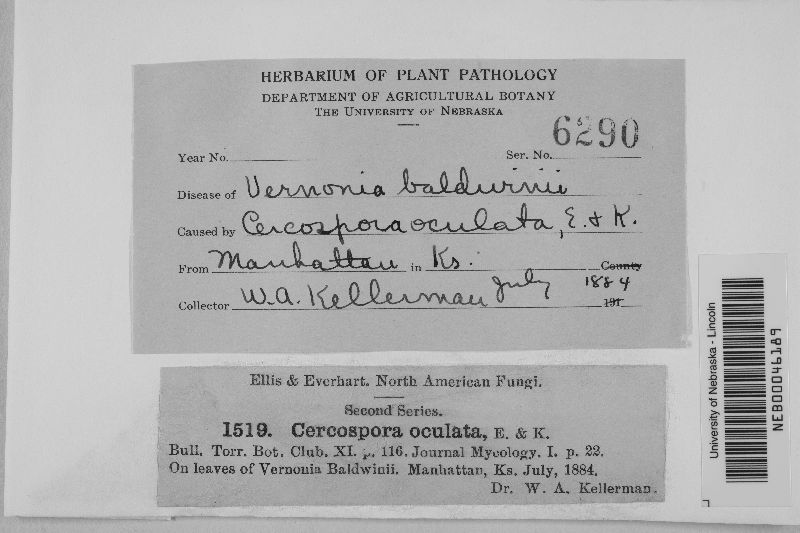 HERBARIUM OF PLANT PATHOLOGY
DEPARTMENT OF AGRICULTURAL BOTANY
THE UNIVERSITY OF NEBRASKA
Year No. Ser. No. 6290
Disease of Vernonia baldwinii
Caused by Cercospora oculata, E. & K.
From Manhattan in Ks. County
Collector W.A. Kellerman July 1884 191
Ellis & Everhart. North American Fungi.
Second Series.
1519. Cercospora oculata, E. & K.
Bull. Torr. Bot. Club. XI. p. 116. Journal Mycology. I. p. 22.
On leaves of Vernonia Baldwinii. Manhattan, Ks. July, 1884.
Dr. W. A. Kellerman.
University of Nebraska - Lincoln
NEB00046189